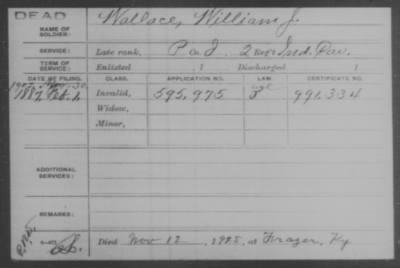 DEAD
NAME OF SOLDIER: Wallace, William J.
SERVICE: Late rank, Ind. Cav.
TERM OF SERVICE: Enlisted , 1 Discharged 1
DATE OF FILING. CLASS. APPLICATION NO. LAW CERTIFICATE NO.
1887 Invalid, 595,975 991334
Widow,
Minor,
ADDITIONAL SERVICES:
REMARKS:
Died Nov 12, 1925, at Frazer, Ky